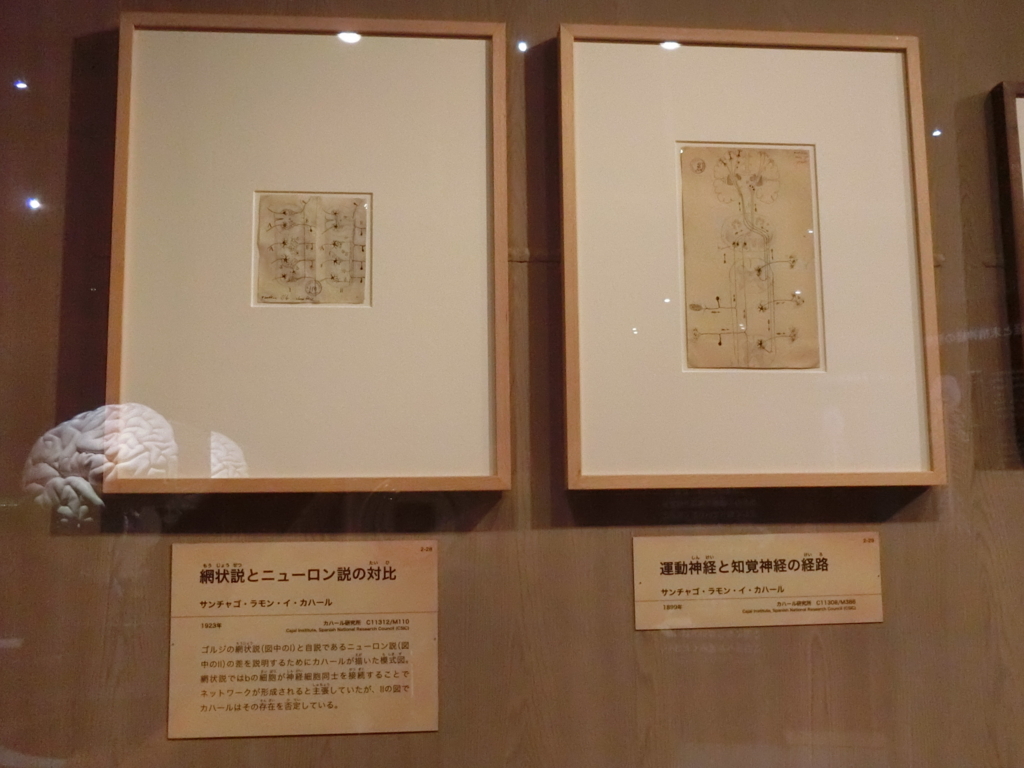 網状説とニューロン説の対比
サンチャゴ・ラモン・イ・カハール
1923年
カハール研究所 C11312/M110
Cajal Institute, Spanish National Research Council (CSIC)
ゴルジの網状説(図中のI)と自説であるニューロン説(図
中のII)の差を説明するためにカハールが描いた模式図。
網状説ではbの細胞が神経細胞同士を接続することで
ネットワークが形成されると主張していたが、IIの図で
カハールはその存在を否定している。
運動神経と知覚神経の経路
サンチャゴ・ラモン・イ・カハール
カハール研究所
Cajal Institute, Spanish National Research Council (CSIC)